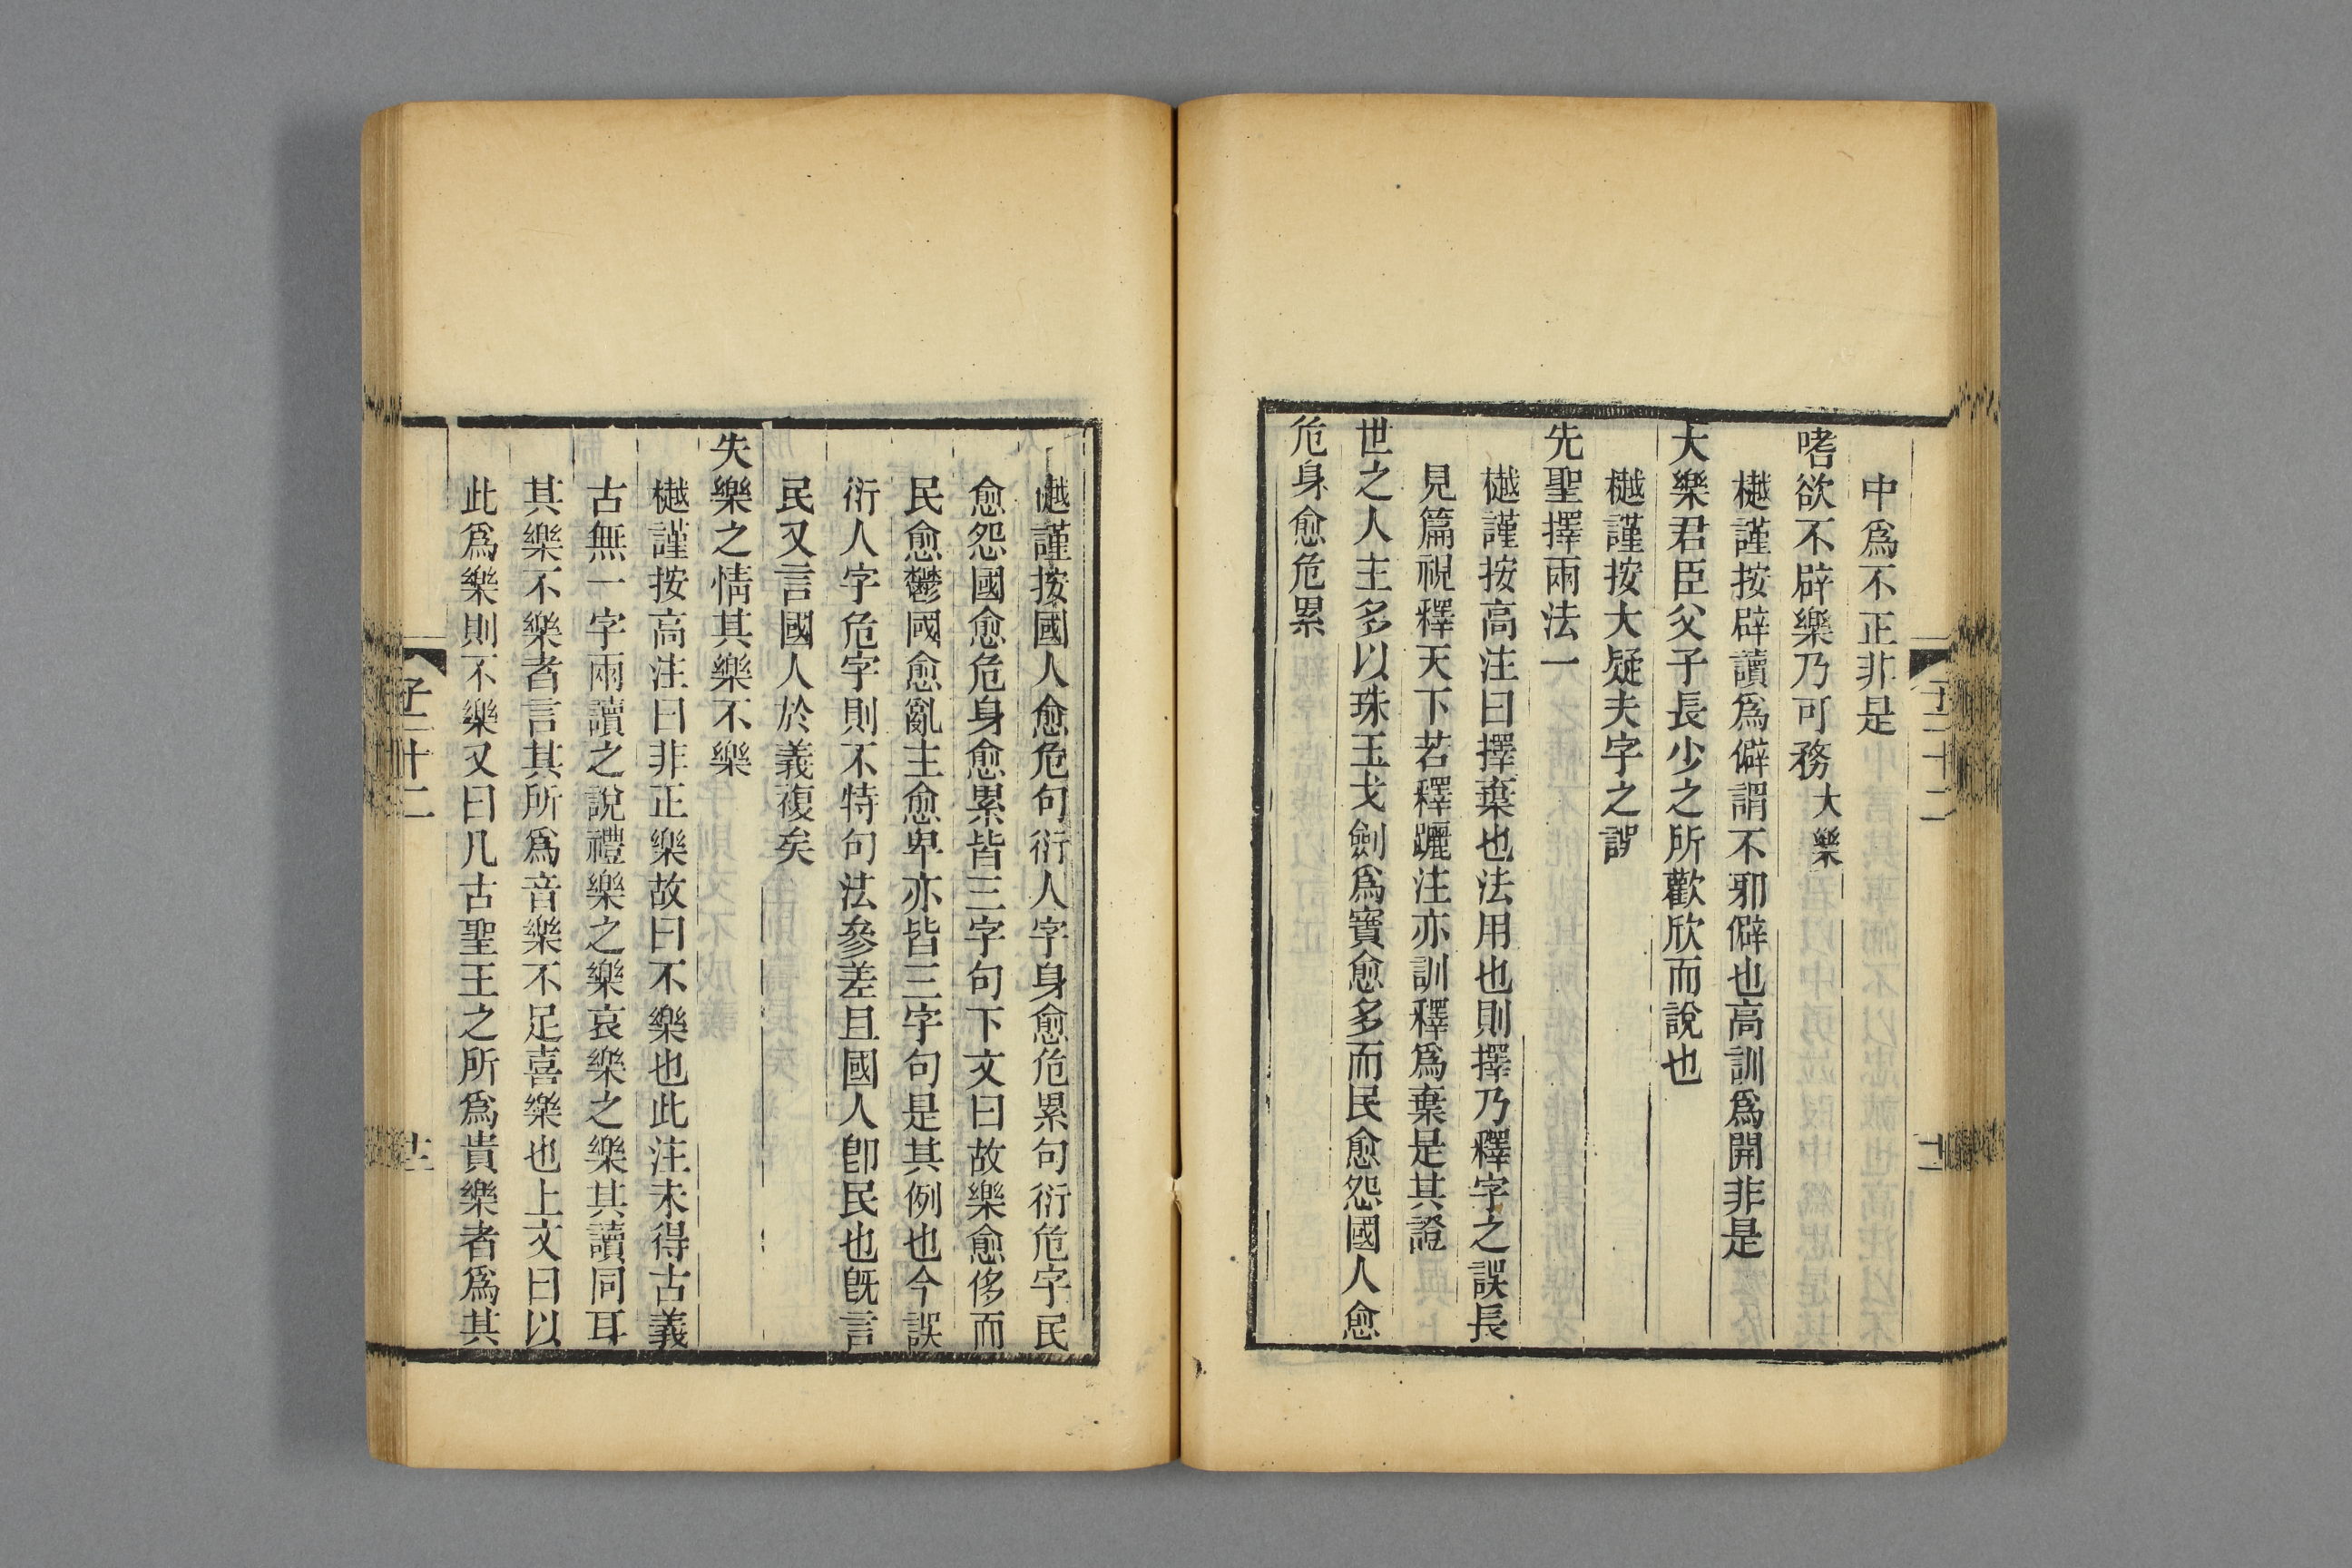 中爲不正非是
嗜欲不辟樂乃可務大樂
樾謹按辟讀爲僻謂不邪僻也高訓爲開非是
大樂君臣父子長少之所歡欣而說也
樾謹按大疑夫字之誤
先聖擇兩法一
樾謹按高注曰擇棄也法用也則擇乃釋字之誤長
見篇視釋天下若釋躧注亦訓釋爲棄是其證
世之人主多以珠玉戈劍爲寶愈多而民愈怨國人愈
危身愈危累
樾謹按國人愈危句衍人字身愈危累句衍危字民
愈怨國愈危身愈累皆三字句下文曰故樂愈侈而
民愈鬱國愈亂主愈卑亦皆三字句是其例也今誤
衍人字危字則不特句法參差且國人卽民也旣言
民又言國人於義複矣
失樂之情其樂不樂
樾謹按高注曰非正樂故曰不樂也此注未得古義
古無一字兩讀之說禮樂之樂哀樂之樂其讀同耳
其樂不樂者言其所爲音樂不足喜樂也上文曰以
此爲樂則不樂又曰凡古聖王之所爲貴樂者爲其
子二十二